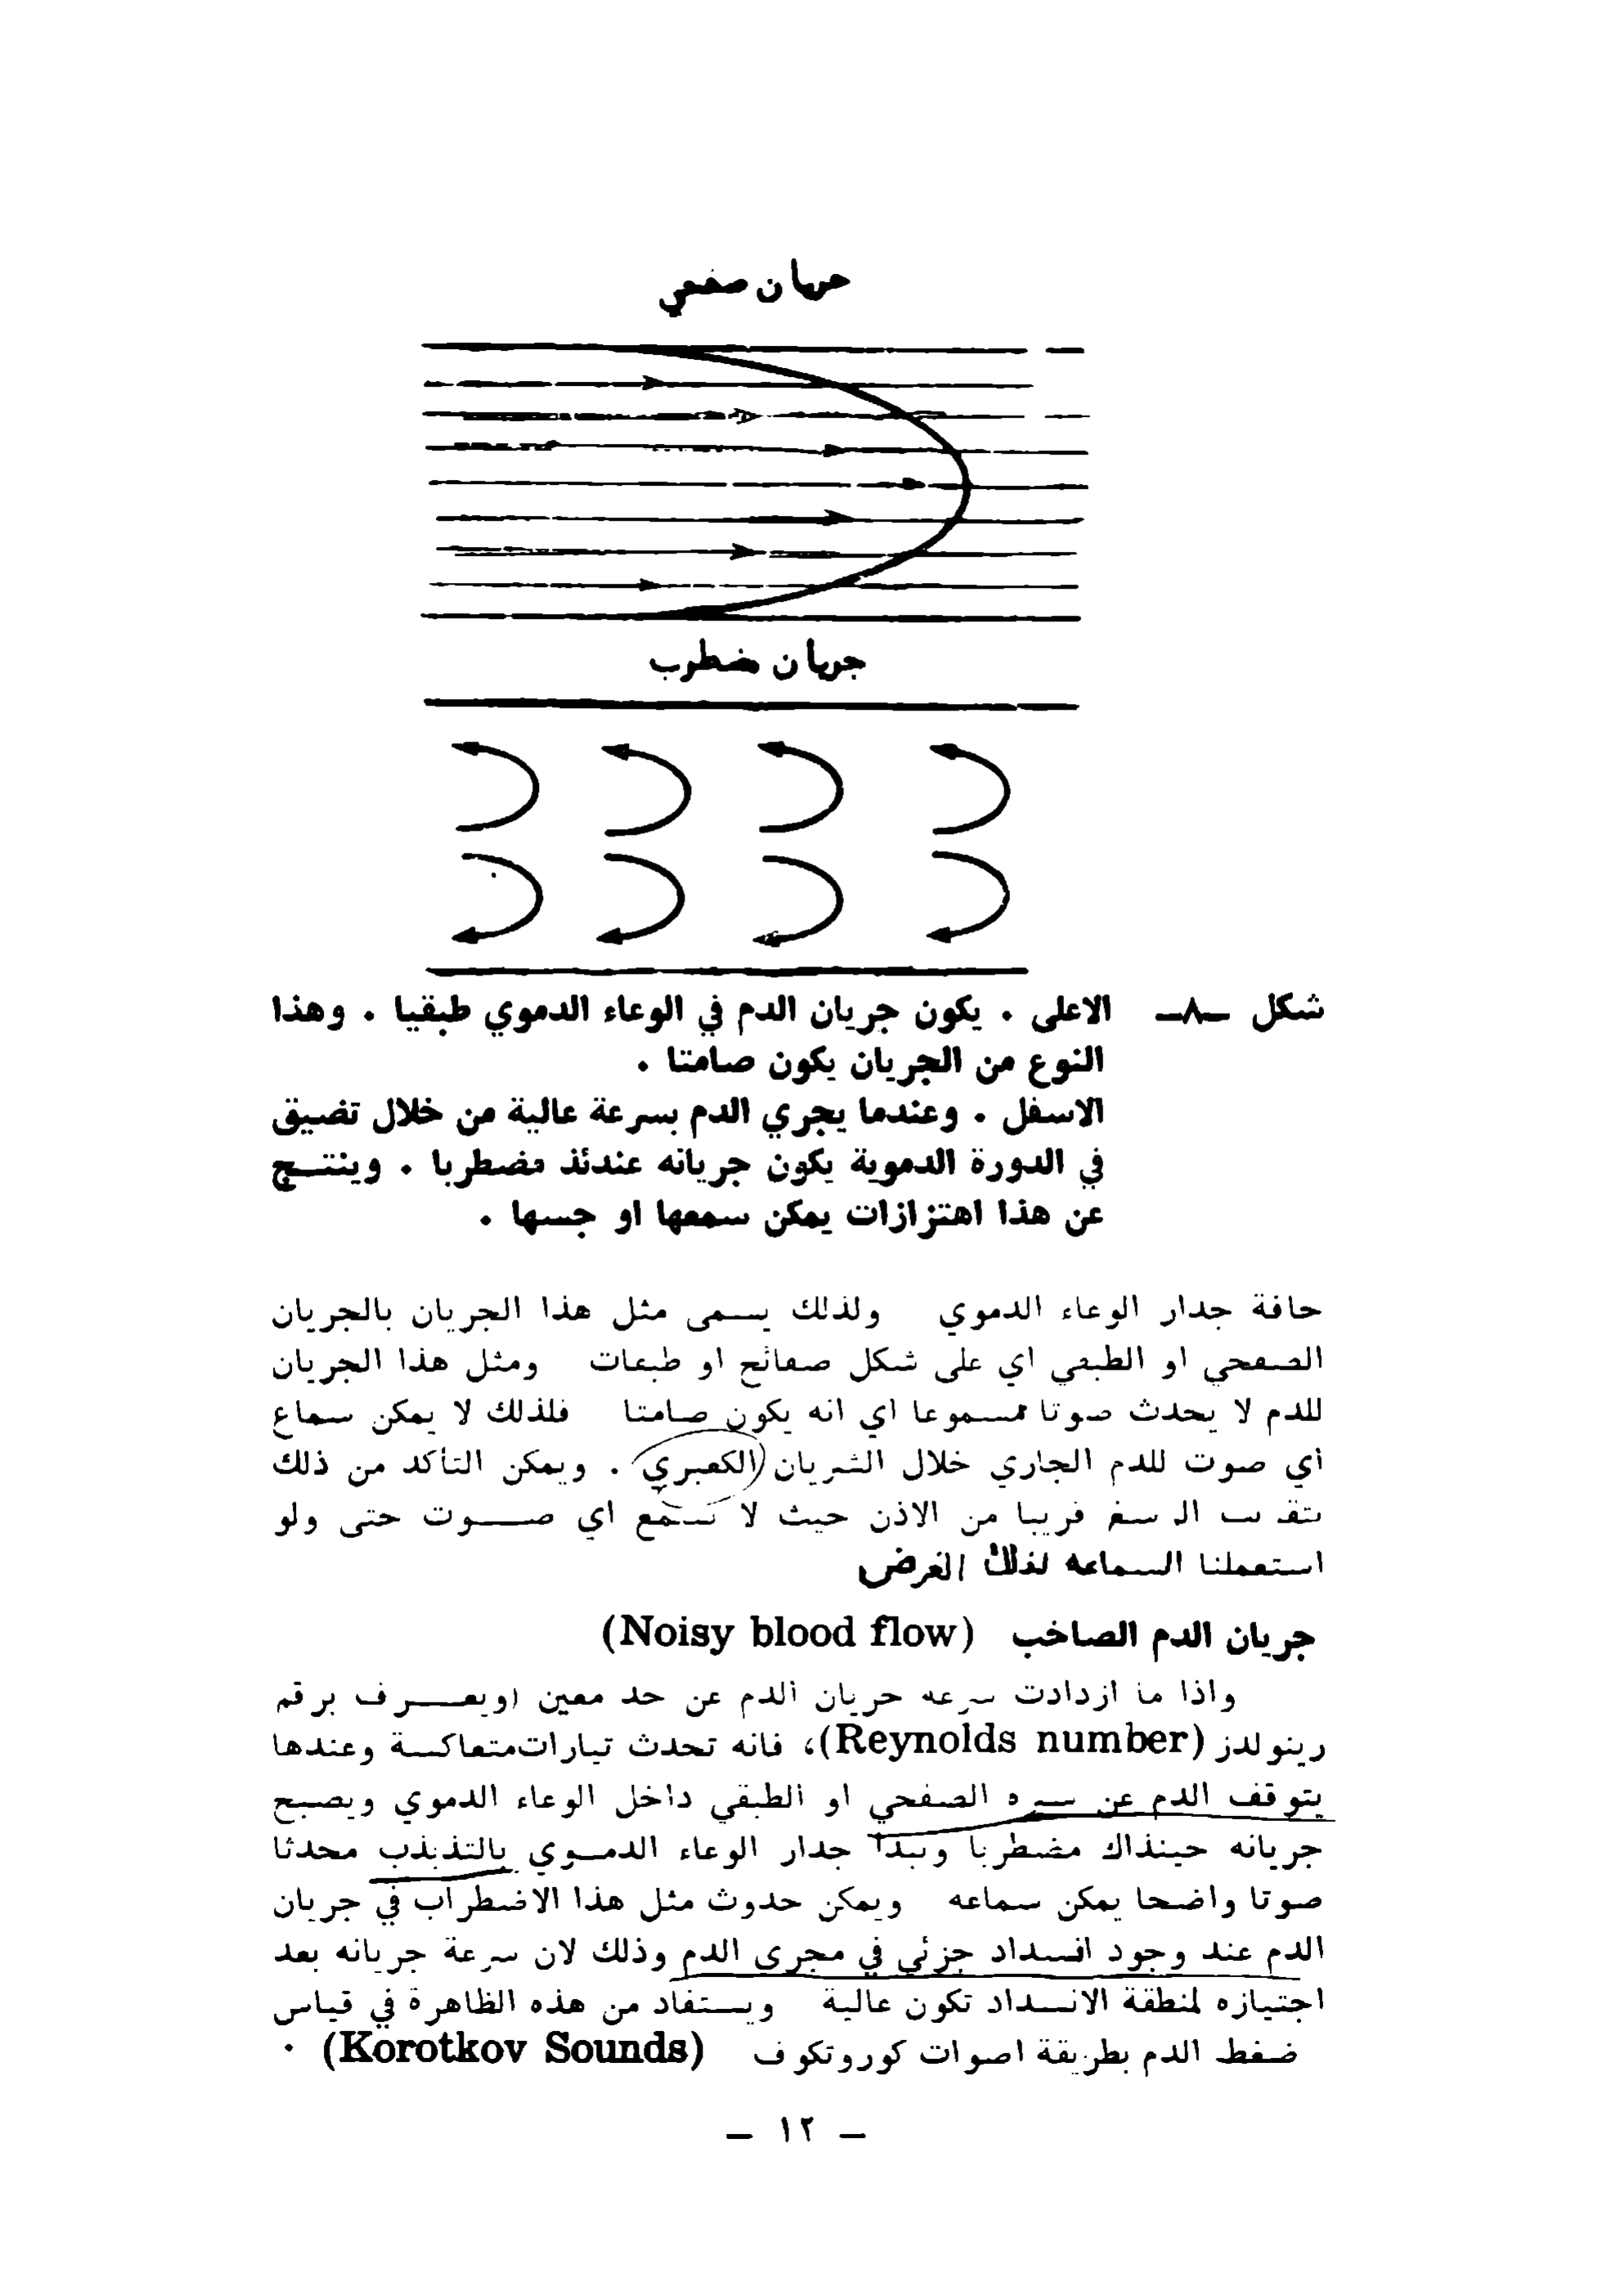 جريان صفحي
جريان مضطرب
شكل ـ٨ـ الاعلى . يكون جريان الدم في الوعاء الدموي طبقيا . وهذا
النوع من الجريان يكون صامتا .
الاسفل . وعندما يجري الدم بسرعة عالية من خلال تضيق
في الدورة الدموية يكون جريانه عندئذ مضطربا . وينتـــج
عن هذا اهتزازات يمكن سمعها او جسها .
حافة جدار الوعاء الدموي ولذلك يسمى مثل هذا الجريان بالجريان
الصفحي او الطبقي اي على شكل صفائح او طبقات ومثل هذا الجريان
للدم لا يحدث صوتا مسموعا اي انه يكون صامتا فلذلك لا يمكن سماع
أي صوت للدم الجاري خلال الشريان (الكعبري) . ويمكن التأكد من ذلك
قريبا من الاذن حيث لا نسمع اي صـــوت حتى ولو
استعملنا السماعة لذلك الغرض
جريان الدم الصاخب (Noisy blood flow)
واذا ما ازدادت سرعة جريان الدم عن حد معين (ويعـــرف برقم
رينولدز (Reynolds number)، فانه تحدث تيارات متعاكسة وعندها
يتوقف الدم عن سيره الصفحي او الطبقي داخل الوعاء الدموي ويصبح
جريانه حينذاك مضطربا ويبدأ جدار الوعاء الدمـوي بالتذبذب محدثا
صوتا واضحا يمكن سماعه ويمكن حدوث مثل هذا الاضطراب في جريان
الدم عند وجود انسداد جزئي في مجرى الدم وذلك لان سرعة جريانه بعد
اجتيازه لمنطقة الانسداد تكون عالية ويستفاد من هذه الظاهرة في قياس
ضغط الدم بطريقة اصوات كوروتكوف (Korotkov Sounds) .
ـ ١٢ ـ